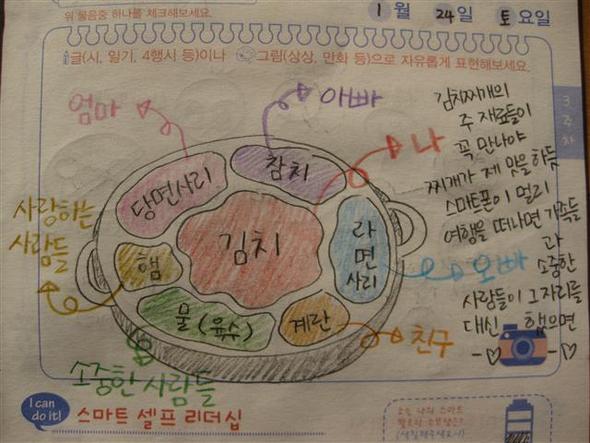 위 물음중 하나를 체크해보세요.
1 월 24 일 토 요일
글(시, 일기, 4행시 등)이나 그림(상상, 만화 등)으로 자유롭게 표현해보세요.
3주차
엄마
아빠
나
오빠
친구
소중한 사람들
사랑하는
사람들
당면사리
참치
김치
라면사리
햄
물(육수)
계란
김치찌개의
주 재료들이
꼭 만나야
찌개가 제 맛을 하듯
스마트폰이 멀리
여행을 떠나면 가족들
과
소중한
사람들이 그 자리를
대신 했으면
I can
do it!
스마트 셀프 리더십